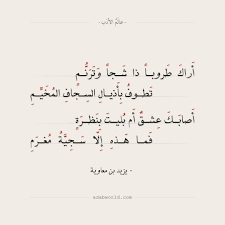 - عالم الأدب -
أراكَ طَروبـاً ذا شَـجـاً وَتَرَنُّـمِ
تَطـوفُ بِأَذيـالِ السِـجافِ المُخَيَّـمِ
أَصابَكَ عِشـقٌ أَم بُليـتَ بِنَظـرَةٍ
فَمـا هَـذِهِ إِلّا سَـجِيَّـةُ مُغـرَمِ
- يزيد بن معاوية -
adabworld.com